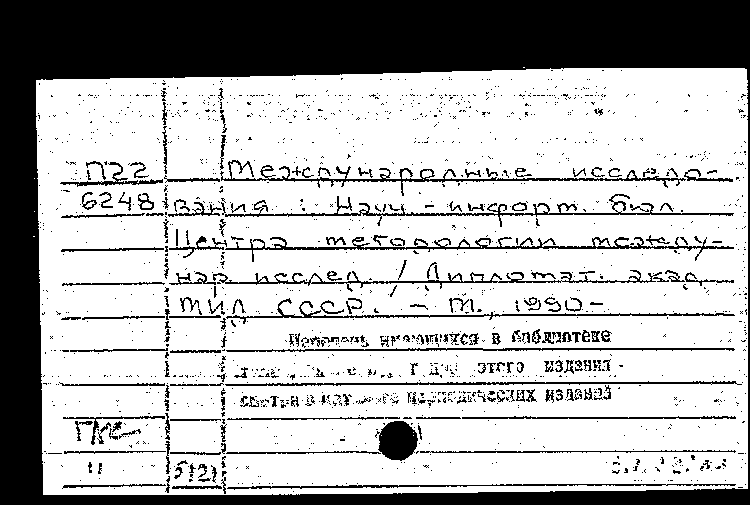 П22 Международные исследо-
6248 вания : Науч.-информ. бюл.
Центра методологии между-
нар. исслед. / Дипломат. акад.
МИД СССР. - М., 1990-
Перечень имеющихся в библиотеке
этого издания
смотри в периодических изданий
5(2)